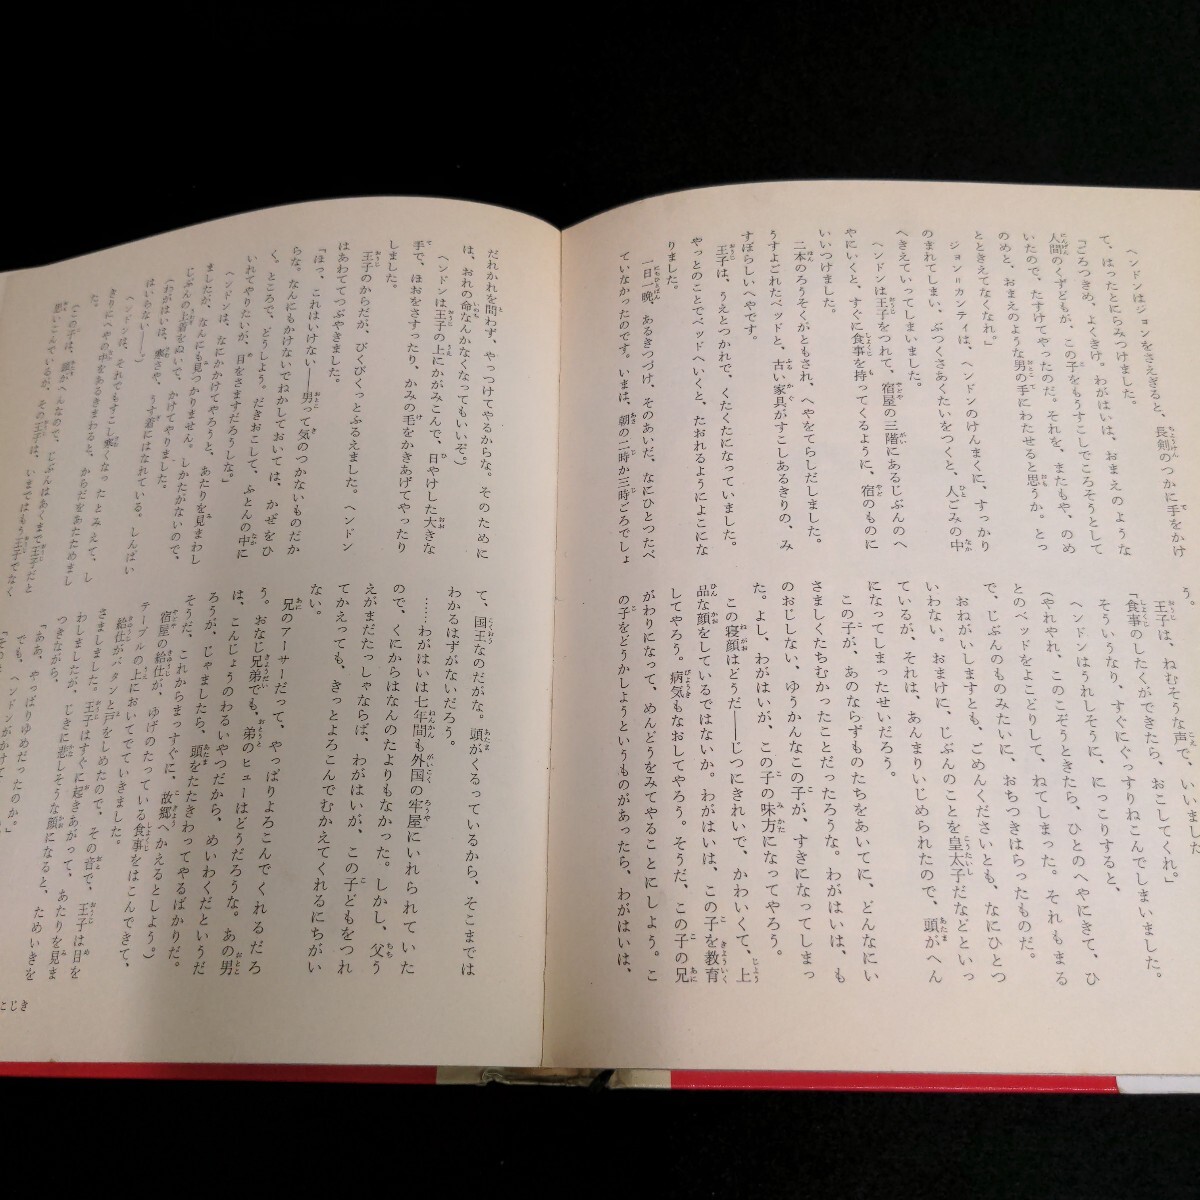 ヘンドンはジョンをさえぎると、長剣のつかに手をかけ
て、はったとにらみつけました。
「ごろつきめ、よくきけ。わがはいは、おまえのような
人間のくずどもが、この子をもうすこしでころそうとして
いたので、たすけてやったのだ。それを、またもや、のめ
のめと、おまえのような男の手にわたせると思うか。とっ
とときえてなくなれ。」
ジョン=カンティは、ヘンドンのけんまくに、すっかり
のまれてしまい、ぶつくさあくたいをつくと、人ごみの中
へきえていってしまいました。
ヘンドンは王子をつれて、宿屋の三階にあるじぶんのへ
やにいくと、すぐに食事を持ってくるように、宿のものに
いいつけました。
二本のろうそくがともされ、へやをてらしだしました。
うすよごれたベッドと、古い家具がすこしあるきりの、み
すぼらしいへやです。
王子は、うえとつかれで、くたくたになっていました。
やっとのことでベッドへいくと、たおれるようによこにな
りました。
一日一晩、あるきつづけ、そのあいだ、なにひとつたべ
ていなかったのです。いまは、朝の二時か三時ごろでしょ
う。
王子は、ねむそうな声で、いいました
「食事のしたくができたら、おこしてくれ。」
そういうなり、すぐにぐっすりねこんでしまいました。
ヘンドンはうれしそうに、にっこりすると、
（やれやれ、このこぞうときたら、ひとのへやにきて、ひ
とのベッドをよこどりして、ねてしまった。それもまる
で、じぶんのものみたいに、おちつきはらったものだ。
おねがいしますとも、ごめんくださいとも、なにひとつ
いわない。おまけに、じぶんのことを皇太子だなどといっ
ているが、それは、あんまりいじめられたので、頭がへん
になってしまったせいだろう。
この子が、あのならずものたちをあいてに、どんなにい
さましくたちむかったことだったろうな。わがはいは、も
のおじしない、ゆうかんなこの子が、すきになってしまっ
た。よし、わがはいが、この子の味方になってやろう。
この寝顔はどうだ――じつにきれいで、かわいくて、上
品な顔をしているではないか。わがはいは、この子を教育
してやろう。病気もなおしてやろう。そうだ、この子の兄
がわりになって、めんどうをみてやることにしよう。こ
の子をどうかしようというものがあったら、わがはいは、
だれかれを問わず、やっつけてやるからな。そのために
は、おれの命なんかなくなってもいいぞ。）
ヘンドンは王子の上にかがみこんで、日やけした大きな
手で、ほおをさすったり、かみの毛をかきあげてやったり
しました。
王子のからだが、びくびくっとふるえました。ヘンドン
はあわててつぶやきました。
「ほっ、これはいけない――男って気のつかないものだか
らな。なんにもかけないでねかしておいては、かぜをひ
く。ところで、どうしよう。だきおこして、ふとんの中に
いれてやりたいが、目をさますだろうしな。」
ヘンドンは、なにかかけてやろうと、あたりを見まわし
ましたが、なんにも見つかりません。しかたがないので、
じぶんの上着をぬいで、かけてやりました。
（わがはいは、寒さや、うす着にはなれている。しんぱい
はいらない――）
ヘンドンは、それでもすこし寒くなったとみえて、し
きりにへやの中をあるきまわると、からだをあたためまし
た。
（この子は、頭がへんなので、じぶんはあくまで王子だと
思いこんでいるが、その王子は、いまではもう王子でなく
て、国王なのだがな。頭がくるっているから、そこまでは
わかるはずがないだろう。
……わがはいは七年間も外国の牢屋にいれられていた
ので、くにからはなんのたよりもなかった。しかし、父う
えがまだたっしゃならば、わがはいが、この子どもをつれ
てかえっても、きっとよろこんでむかえてくれるにちがい
ない。
兄のアーサーだって、やっぱりよろこんでくれるだろ
う。おなじ兄弟でも、弟のヒューはどうだろうな。あの男
は、こんじょうのわるいやつだから、めいわくだというだ
ろうが、じゃましたら、頭をたたきわってやるばかりだ。
そうだ、これからまっすぐに、故郷へかえるとしよう。）
宿屋の給仕が、ゆげのたっている食事をはこんできて、
テーブルの上においてでていきました。
給仕がバタンと戸をしめたので、その音で、王子は目を
さましました。王子はすぐに起きあがって、あたりを見ま
わしましたが、じきに悲しそうな顔になると、ためいきを
つきながら、
「ああ、やっぱりゆめだったのか。」
でも、ヘンドンがかけて
こじき